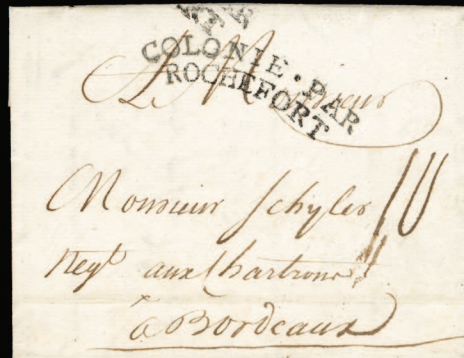 COLONIE.PAR
ROCHEFORT
A Monsieur
Monsieur Schyler
Negt aux Chartrons
à Bordeaux